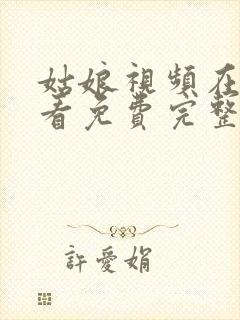 姑娘視頻在
看免費完整
許愛娟